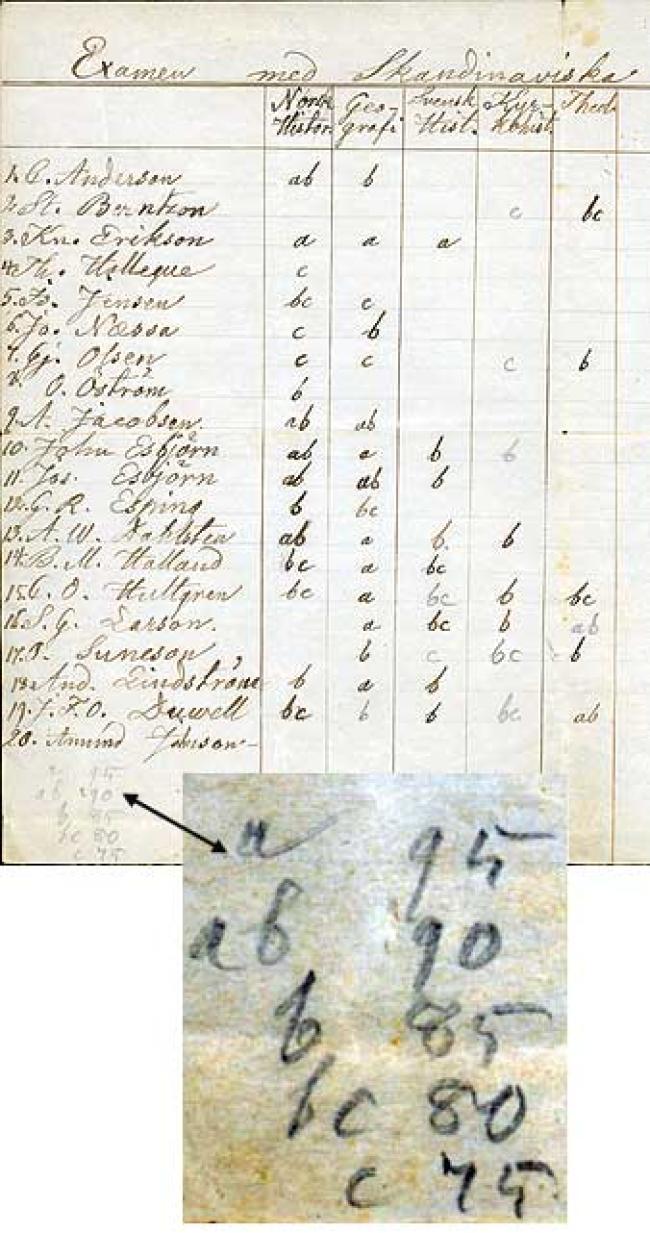 Examen med Skandinaviska
Norsk Histor. Geo-grafi Svensk Hist. Kyr-kohist. Theol.
1. C. Anderson ab b
2. St. Berntson c bc
3. Kn. Erikson a a a
4. Th. c
5. Jensen bc c
6. Jo. Næssa c b
7. Gj. Olsen c c c b
8. O. Öström b
9. A. Jacobsen ab ab
10. John Esbjörn ab a b b
11. Jos. Esbjörn ab ab b
12. G. R. Esping b bc
13. A. W. ab a b. b
14. B. M. Halland bc a bc
15. C. O. Hultgren bc a bc b bc
16. S. G. Larson. a bc b ab
17. Suneson b c bc b
18. And. Lindström b a b
19. J. F. O. Duwell bc b b bc ab
20. Amund Johnson
a 95
ab 90
b 85
bc 80
c 75
a 95
ab 90
b 85
bc 80
c 75